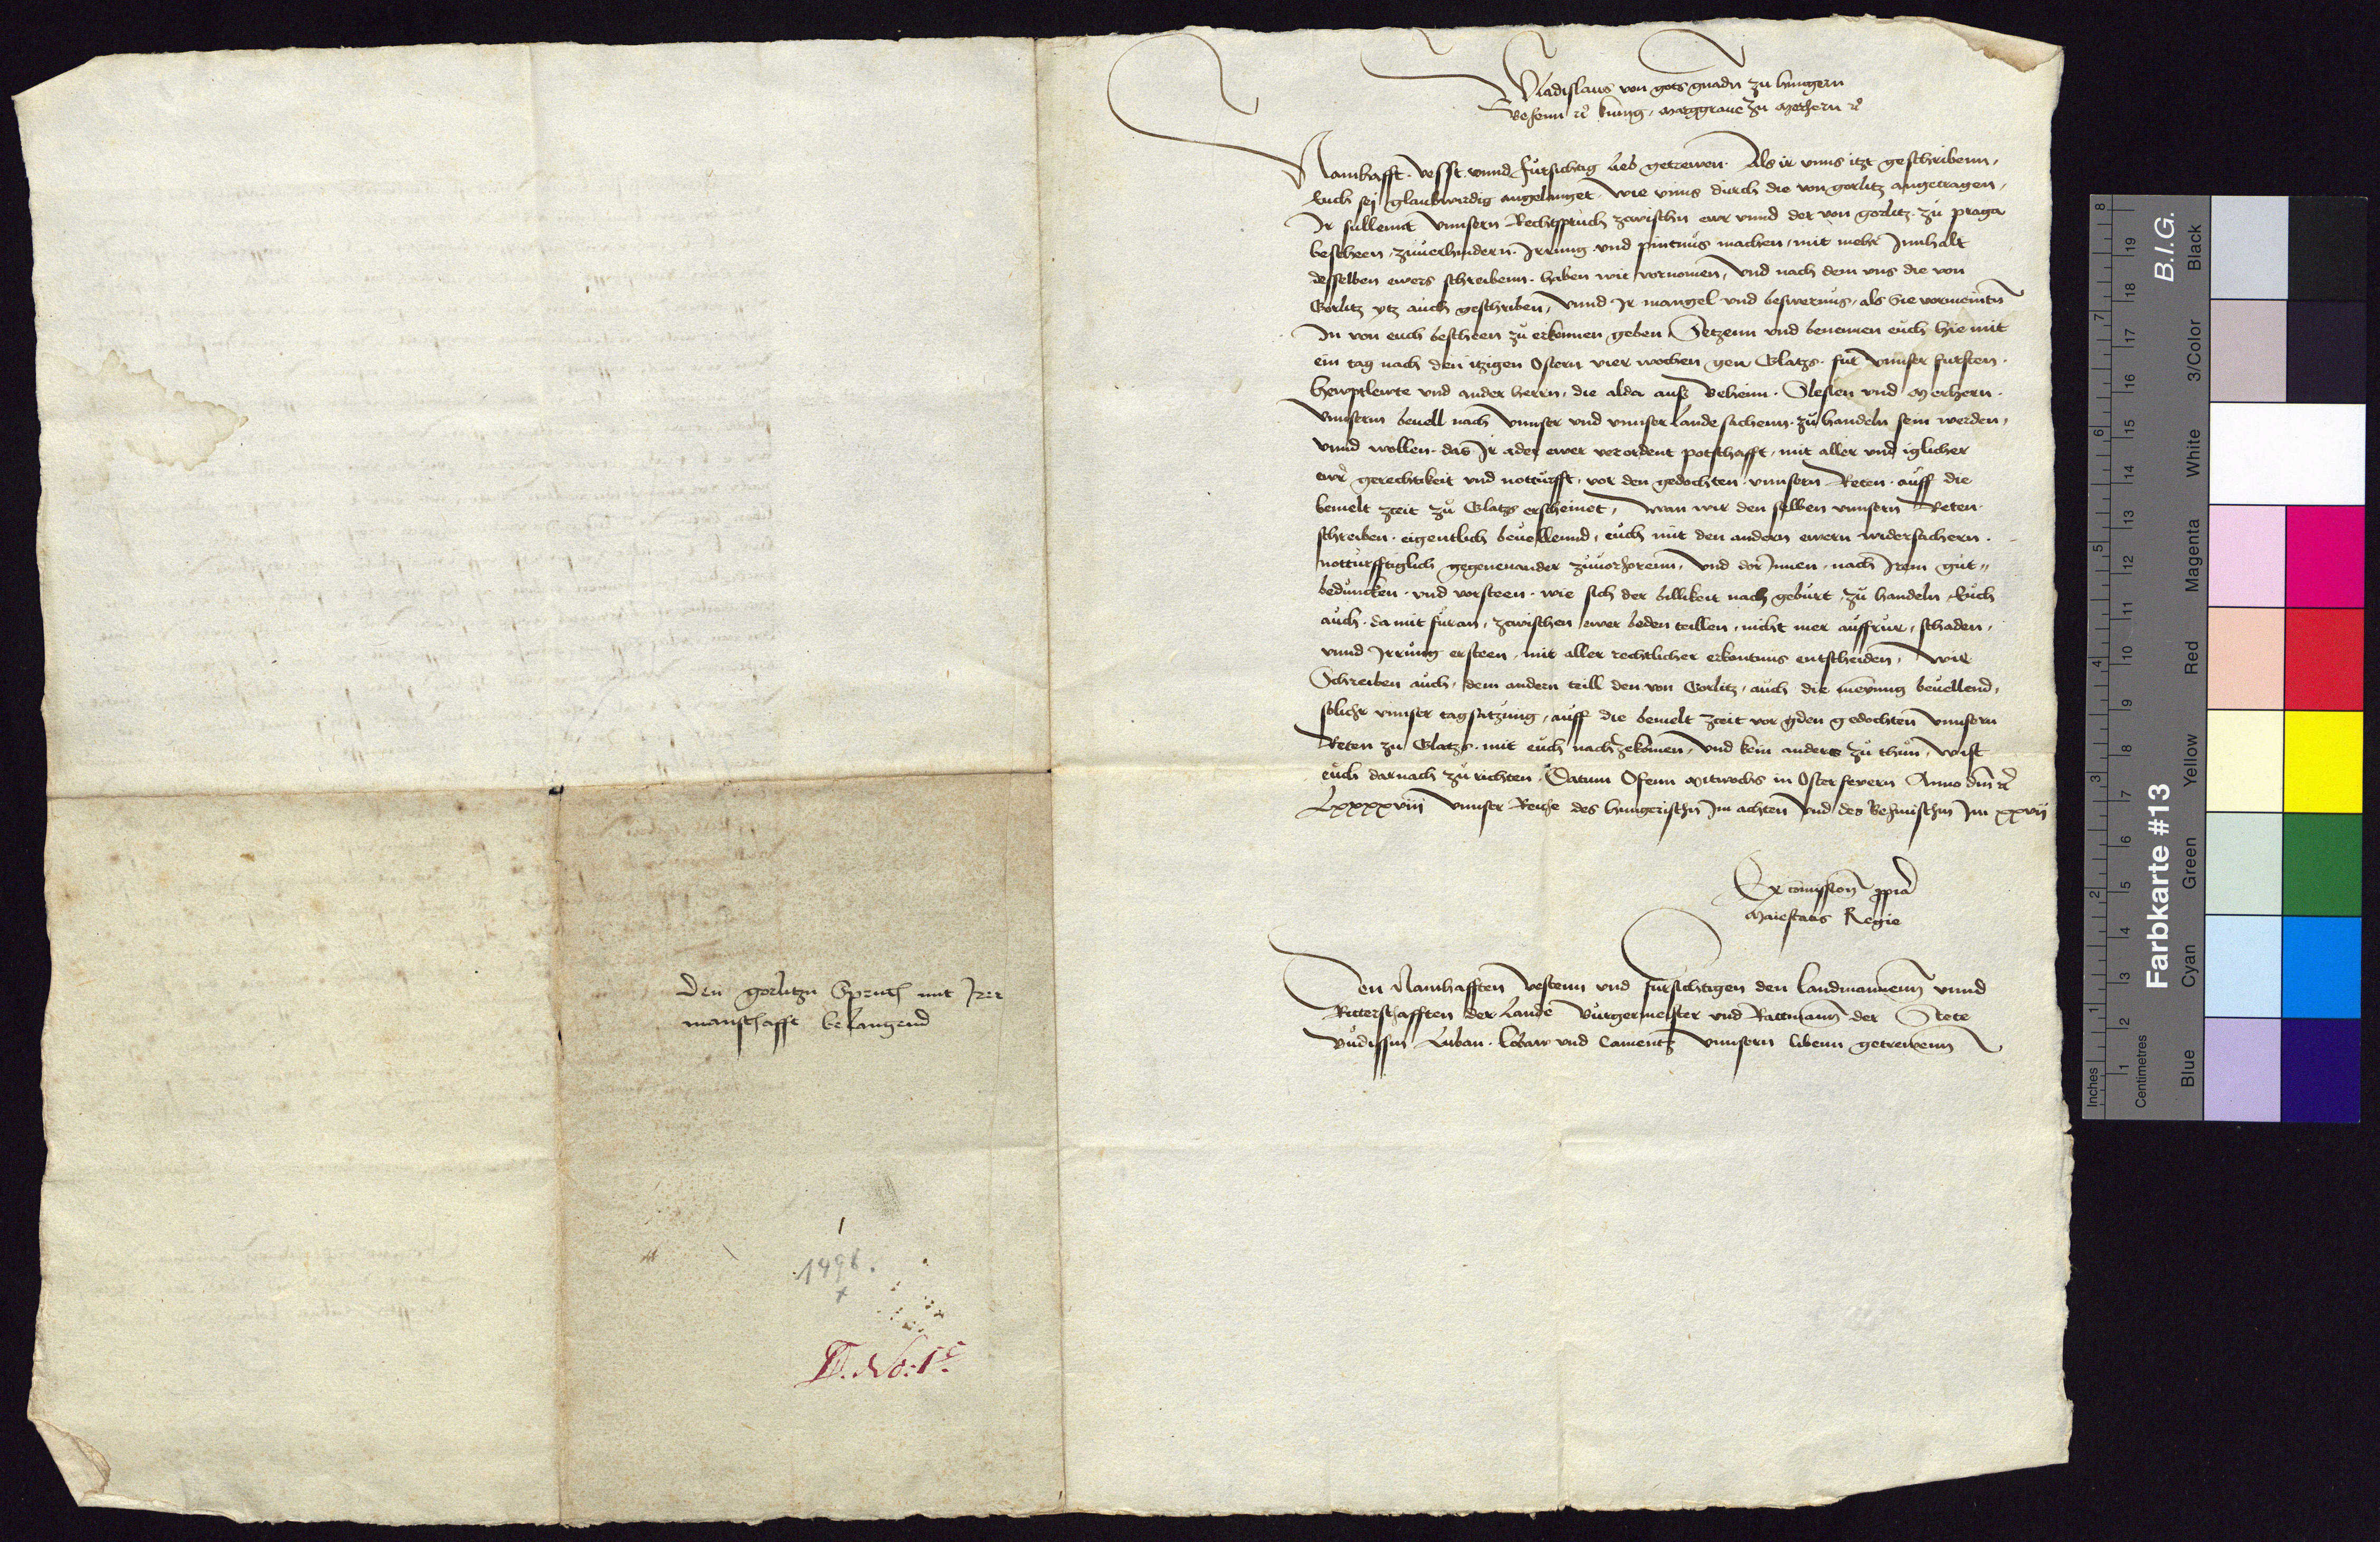 Wladislaus von gots gnadn zu hungern
Behem rc kunig, marggraue zu Merhern rc
Namhafft. vesst. vnnd fursichtig lieb getrewen. Als ir vnns itzt geschribenn,
Euch sej glaubwirdig angelanget, wie vnns durch die von gorlitz angetragen,
Ir sullennt vnnsern Rechtspruch zcwischn ewr vnnd der von gorlitz. zu praga
bescheen, zuuerhindern. Irrung vnd pintnus machen, mit mehr Innhalt
desselben ewers schreibenn. haben wir vornomen, vnd nach dem vns die von
Gorlitz ytz auch geschriben, vnnd Ir mangel vnd beswernus, als Sie vormeintn
In von euch bescheen zu erkennen geben, Setzenn vnd benennen euch hie mit
ein tag nach den itzigen Ostern vier wochen gen Glatzs. fur vnnser fursten.
hewptlewte vnd ander herrn, die alda auß Behemn. Slesien vnd Merhern.
vnnserm beuell nach vnnser vnd vnnser lande sachenn. zu handeln sein werden,
vnnd wollen. das Ir ader ewer verordent potschafft, mit aller vnd iglicher
ewr gerechtikeit vnd notturfft, vor den gedochten vnnsern Reten. auff die
bemelt zceit zu Glatzs erscheinet, wan wir den selben vnnsern Reten.
schreiben. eigentlich beuellennd, euch mit den andern ewern widersachern.
notturfftiglich gegeneinander zuuorhorenn, vnd dor Innen, nach Irem gut„
beduncken. vnd vorsteen. wie sich der billikeit nach geburt, zu handeln, Euch
auch. da mit furan, zcwischen ewer beden teillen, nicht mer auffrur, schaden,
vnnd Irrung ersteen, mit aller rechtlicher erkentnus entscheiden, Wir
Schreiben auch, dem andern teill den von Gorlitz, auch die meynung beuellend,
solichr vnnser tagsatzung, auff die bemelt zceit vor gden gedochten vnnsern
Reten zu Glatzs. mit euch nachzekomen, vnd kein anders zu thun, wist
euch darnach zu richten. Datum Ofenn Mitwochs in Osterfeyern Anno dmi rc
Lxxxxviii vnnser Reiche des hungerischn Im achten vnd des Behmischnn Im xxvij
Ex comissione ppria
Maiestatis Regie
Den Namhafften vestenn vnd fursichtigen den landmannenn vnnd
Ritterschafften der Lande Burgermeister vnd Rattmann der Stete
Budissin Luban. Lobaw vnd Camentz vnnsern libenn getrewenn
Den gorlitzn Spruch mit Irer
manschafft belangend
1498.
II. No: 1
8 7 6 5 4 3 2 1 Inches
19 18 17 16 15 14 13 12 11 10 9 8 7 6 5 4 3 2 1 Centimetres
Farbkarte #13 B.I.G.
Blue Cyan Green Yellow Red Magenta White 3/Color Black